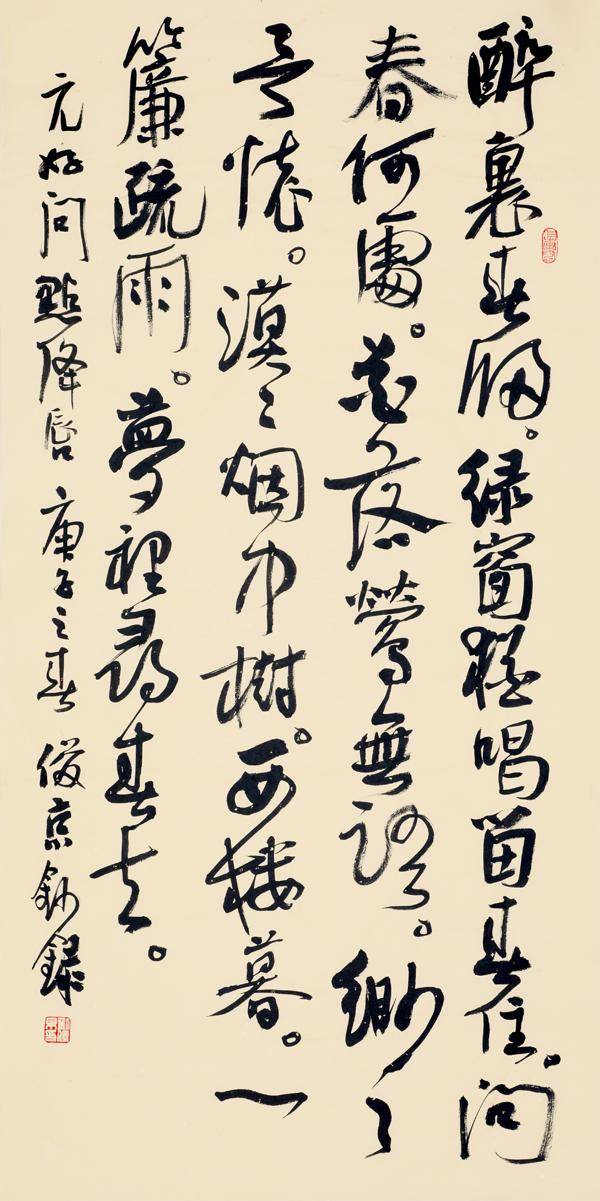 醉裏春歸。綠窗猶唱留春住。問
春何處。花落鶯無語。緲〻
吟懷。漠〻烟中樹。西樓暮。一
簾疏雨。夢裡尋春去。
元好問點降唇 庚子之春 俊京鈔錄